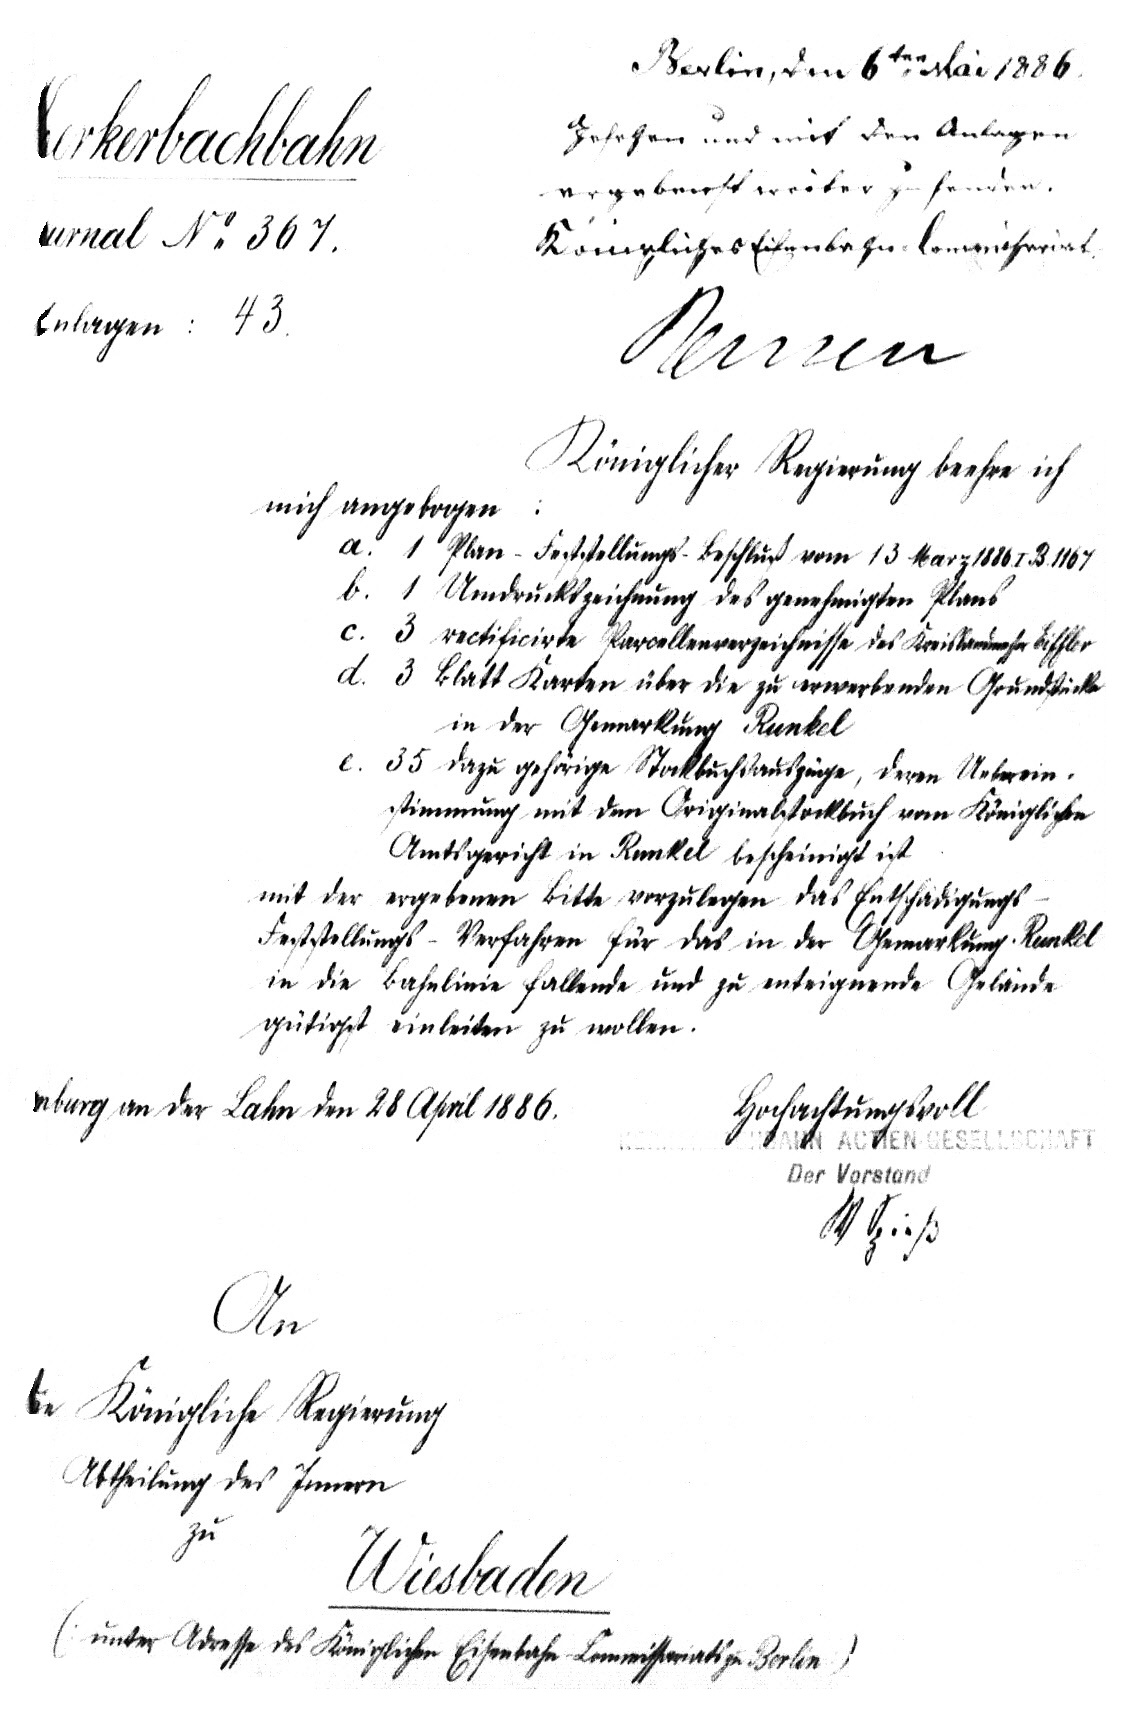 Berlin, den 6ten Mai 1886.
Gesehen und mit den Anlagen
ergebenst weiter zu senden.
Königliches Eisenbahn-Commissariat.
Kerkerbachbahn
urnal No 367.
Anlagen : 43.
Königlicher Regierung beehre ich
mich angebogen :
a. 1 Plan-Feststellungs-Beschluß vom 13 März 1886 I. B. 1167
b. 1 Umdruckszeichnung des genehmigten Plans
c. 3 rectificirte Parcellenverzeichnisse des
d. 3 Blatt Karten über die zu erwerbenden Grundstücke
in der Gemarkung Runkel
e. 35 dazu gehörige Stockbuchsauszüge, deren Ueberein-
stimmung mit dem Originalstockbuch vom Königlichen
Amtsgericht in Runkel bescheinigt ist
mit der ergebenen Bitte vorzulegen das Entschädigungs-
Feststellungs-Verfahren für das in der Gemarkung Runkel
in die Bahnlinie fallende und zu enteignende Gelände
gütigst einleiten zu wollen.
nburg an der Lahn den 28 April 1886.
Hochachtungsvoll
BAHN ACTIEN-GESELLSCHAFT
Der Vorstand
W Spieß
An
die Königliche Regierung
Abtheilung des Innern
zu
Wiesbaden
(: unter Adresse des Königlichen Eisenbahn-Commissariats zu Berlin :)